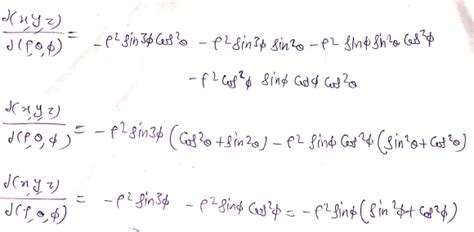 d(x,y,z)/d(ρ,θ,φ) = -ρ² sin3φ cos²θ - ρ² sin3φ sin²θ - ρ² sinφ sin²θ cos²φ
-ρ² cos²φ sinφ cosφ cos²θ
d(x,y,z)/d(ρ,θ,φ) = -ρ² sin3φ (cos²θ + sin²θ) - ρ² sinφ cos²φ (sin²θ + cos²θ)
d(x,y,z)/d(ρ,θ,φ) = -ρ² sin3φ - ρ² sinφ cos²φ = -ρ² sinφ (sin²φ + cos²φ)